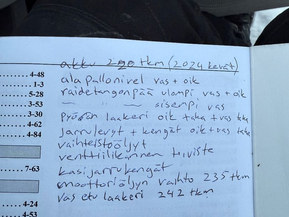 akku 290 tkm (2024 kevät)
ala pallonivel vas + oik
raidetangonpää ulompi vas + oik
—"— —"— sisempi vas
Pyörän laakeri oik taka + vas taka
Jarrulevyt + kengät oik + vas taka
vaihteistööljyt
venttiilikannen tiiviste
käsijarrukengät
moottoriöljyn vaihto 235 tkm
vas etu laakeri 242 tkm
4-48
1-3
5-28
3-53
3-30
4-62
4-84
7-63
4-24
4-53